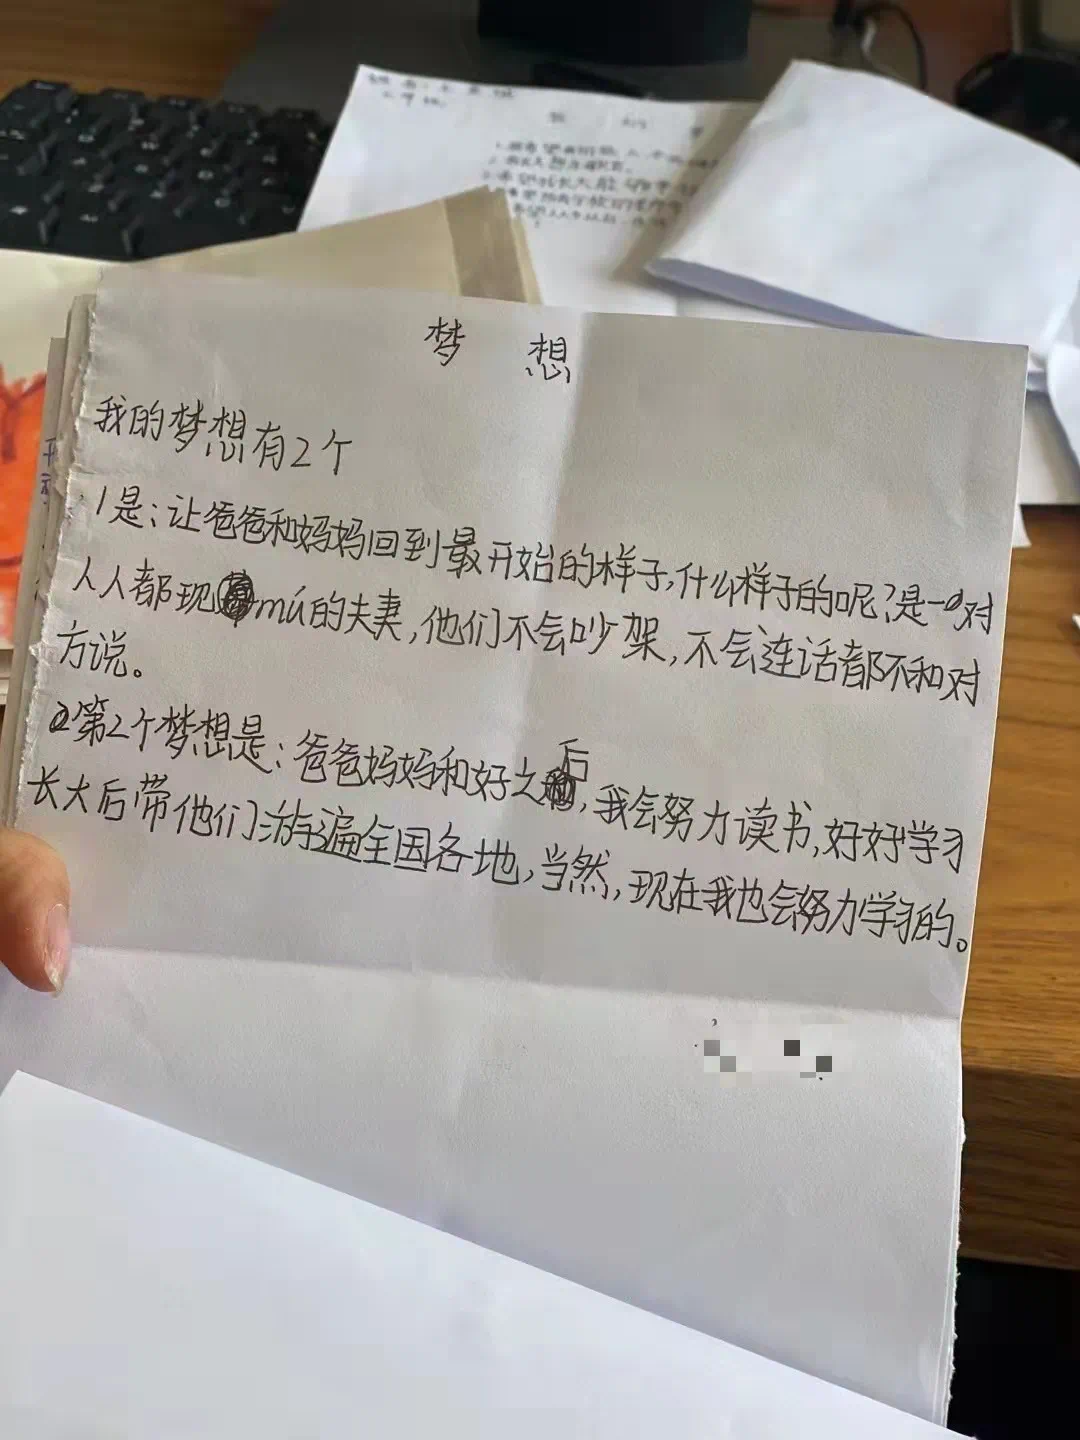 梦 想
我的梦想有2个
1是：让爸爸和妈妈回到最开始的样子,什么样子的呢?是一对
人人都现mú的夫妻,他们不会吵架,不会连话都不和对
方说。
2第2个梦想是：爸爸妈妈和好之后,我会努力读书,好好学习
长大后带他们游遍全国各地,当然,现在我也会努力学习的。